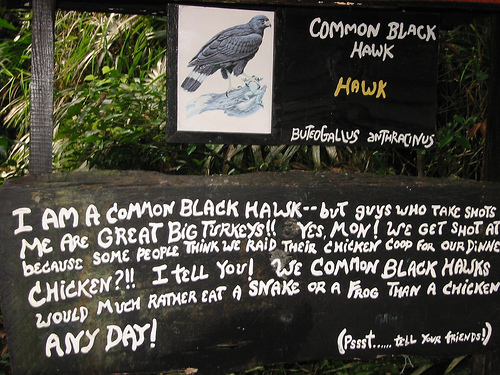 COMMON BLACK
HAWK
HAWK
BUTEOGALLUS ANTHRACINUS
I AM A COMMON BLACK HAWK--BUT GUYS WHO TAKE SHOTS
ME ARE GREAT BIG TURKEYS!! YES, MON! WE GET SHOT AT
BECAUSE SOME PEOPLE THINK WE RAID THEIR CHICKEN COOP FOR OUR DINNE
CHICKEN?!! I TELL YOU! WE COMMON BLACK HAWKS
WOULD MUCH RATHER EAT A SNAKE OR A FROG THAN A CHICKEN
ANY DAY!
(PSSST......TELL YOUR FRIENDS!)